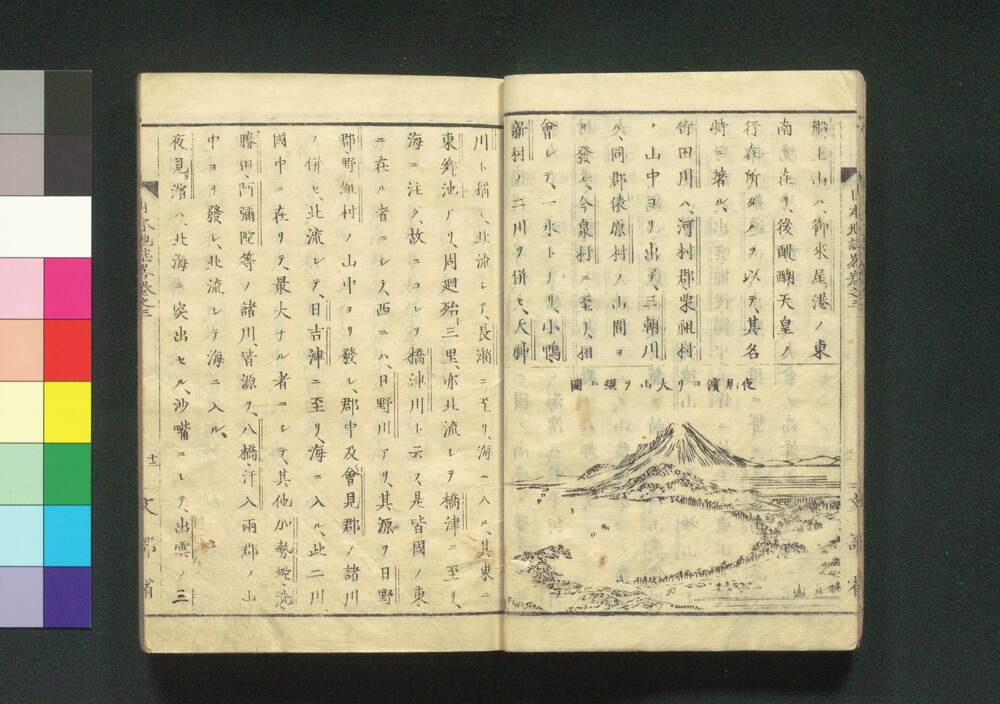 船上山ハ、御來屋港ノ東
南ニ在リ、後醍醐天皇ノ
行在所タルヲ以テ、其名
特ニ著ル、
竹田川ハ、河村郡柴祖村
ノ山中ヨリ出テ、三朝川
ハ、同郡俵原村ノ山間ヨ
リ發シ、今泉村ニ至リ、相
會シテ、一水トナリ、小鴨、
新村ノ二川ヲ併セ、天神
夜見濱ヨリ大山ヲ望ム圖
川ト稱シ、北流シテ、長瀬ニ至リ、海ニ入ル、其東ニ
東郷池アリ、周廻殆三里、亦北流シテ橋津ニ至リ、
海ニ注ク、故ニコレヲ橋津川ト云フ、是皆國ノ東
ニ在ル者ニシテ、西ニハ、日野川アリ、其源ヲ日野
郡、野組村ノ山中ヨリ發シ、郡中及會見郡ノ諸川
ヲ併セ、北流シテ、日吉津ニ至リ、海ニ入ル、此二川
國中ニ在リテ、最大ナル者ニシテ、其他加勢蛇、洗
勝田、阿彌陀等ノ諸川、皆源ヲ、八橋、汗入兩郡ノ山
中ヨリ發シ、北流シテ海ニ入ル、
夜見濱ハ、北海ニ突出セル、沙嘴ニシテ、出雲ノ三
日本地誌畧卷之三
十二
文部省